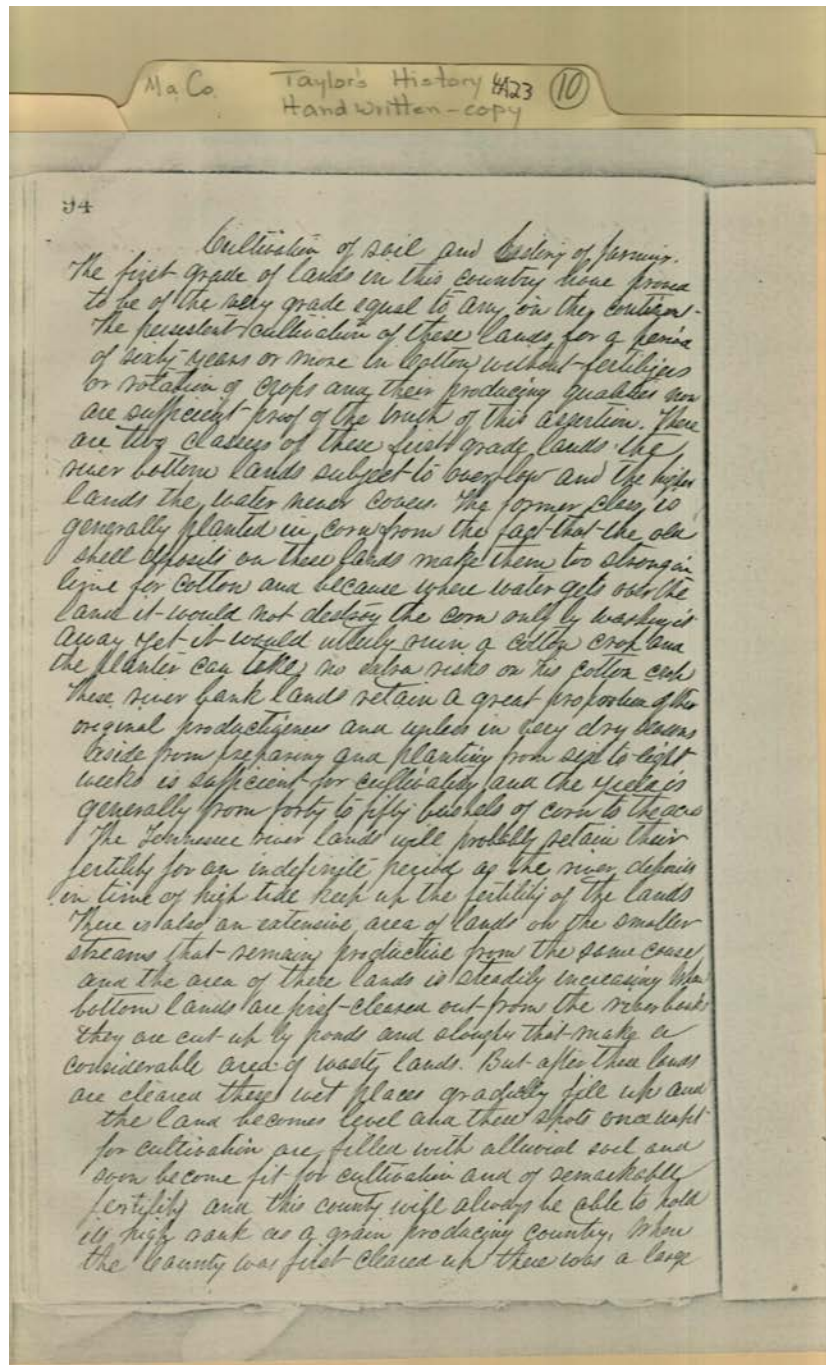 Ma. Co. Taylor's History 4A23 10
Handwritten-copy
94
Cultivation of soil and of farming.
The first grade of lands in this country have proved
to be of the very grade equal to any on the continent-
The persestent cultivation of these lands for a period
of sixty years or more in Cotton without fertilizers
or rotation of crops and their producing qualities now
are sufficient proof of the truth of this assertion. There
are two classes of these first grade lands the
river bottom lands subject to overflow and the higher
lands the water never covers. The former class is
generally planted in corn from the fact that the old
shell deposits on these lands make them too strong in
lime for cotton and because where water gets over the
land it would not destroy the corn only by washing it
away yet it would utterly ruin a cotton crop and
the planter can take no extra risks on his cotton crop
These river bank lands retain a great proportion of their
original productiveness and unless in very dry seasons
aside from preparing and planting from six to eight
weeks is sufficient for cultivating and the yield is
generally from forty to fifty bushels of corn to the acre
The Tennessee river lands will probably retain their
fertility for an indefinite period as the river deposits
in time of high tide keep up the fertility of the lands
There is also an extensive area of lands on the smaller
streams that remain productive from the same cause
and the area of these lands is steadily increasing When
bottom lands are first cleared out from the river banks
they are cut up by ponds and sloughs that make a
considerable area of waste lands. But after these lands
are cleared these wet places gradually fill up and
the land becomes level and these spots once unfit
for cultivation are filled with alluvial soil and
soon become fit for cultivation and of remarkable
fertility and this county will always be able to hold
its high rank as a grain producing country. When
the County was first cleared up there was a large